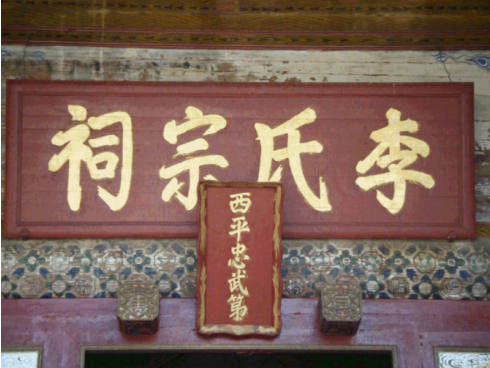 李氏宗祠
西平忠武第